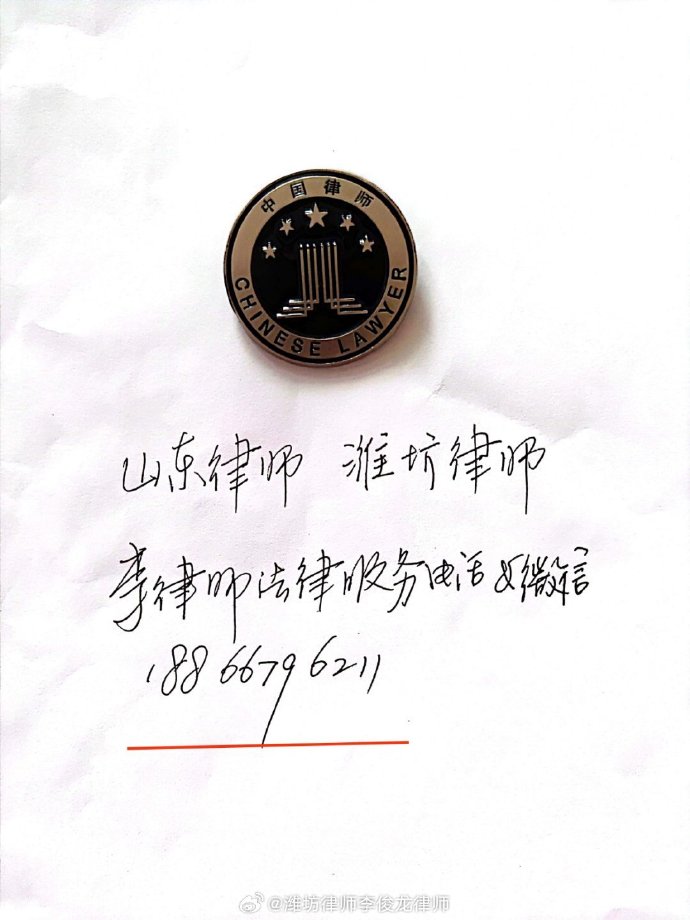 中国律师
CHINESE LAWYER
山东律师 潍坊律师
李律师法律服务电话及微信
18866796211
@潍坊律师李俊龙律师